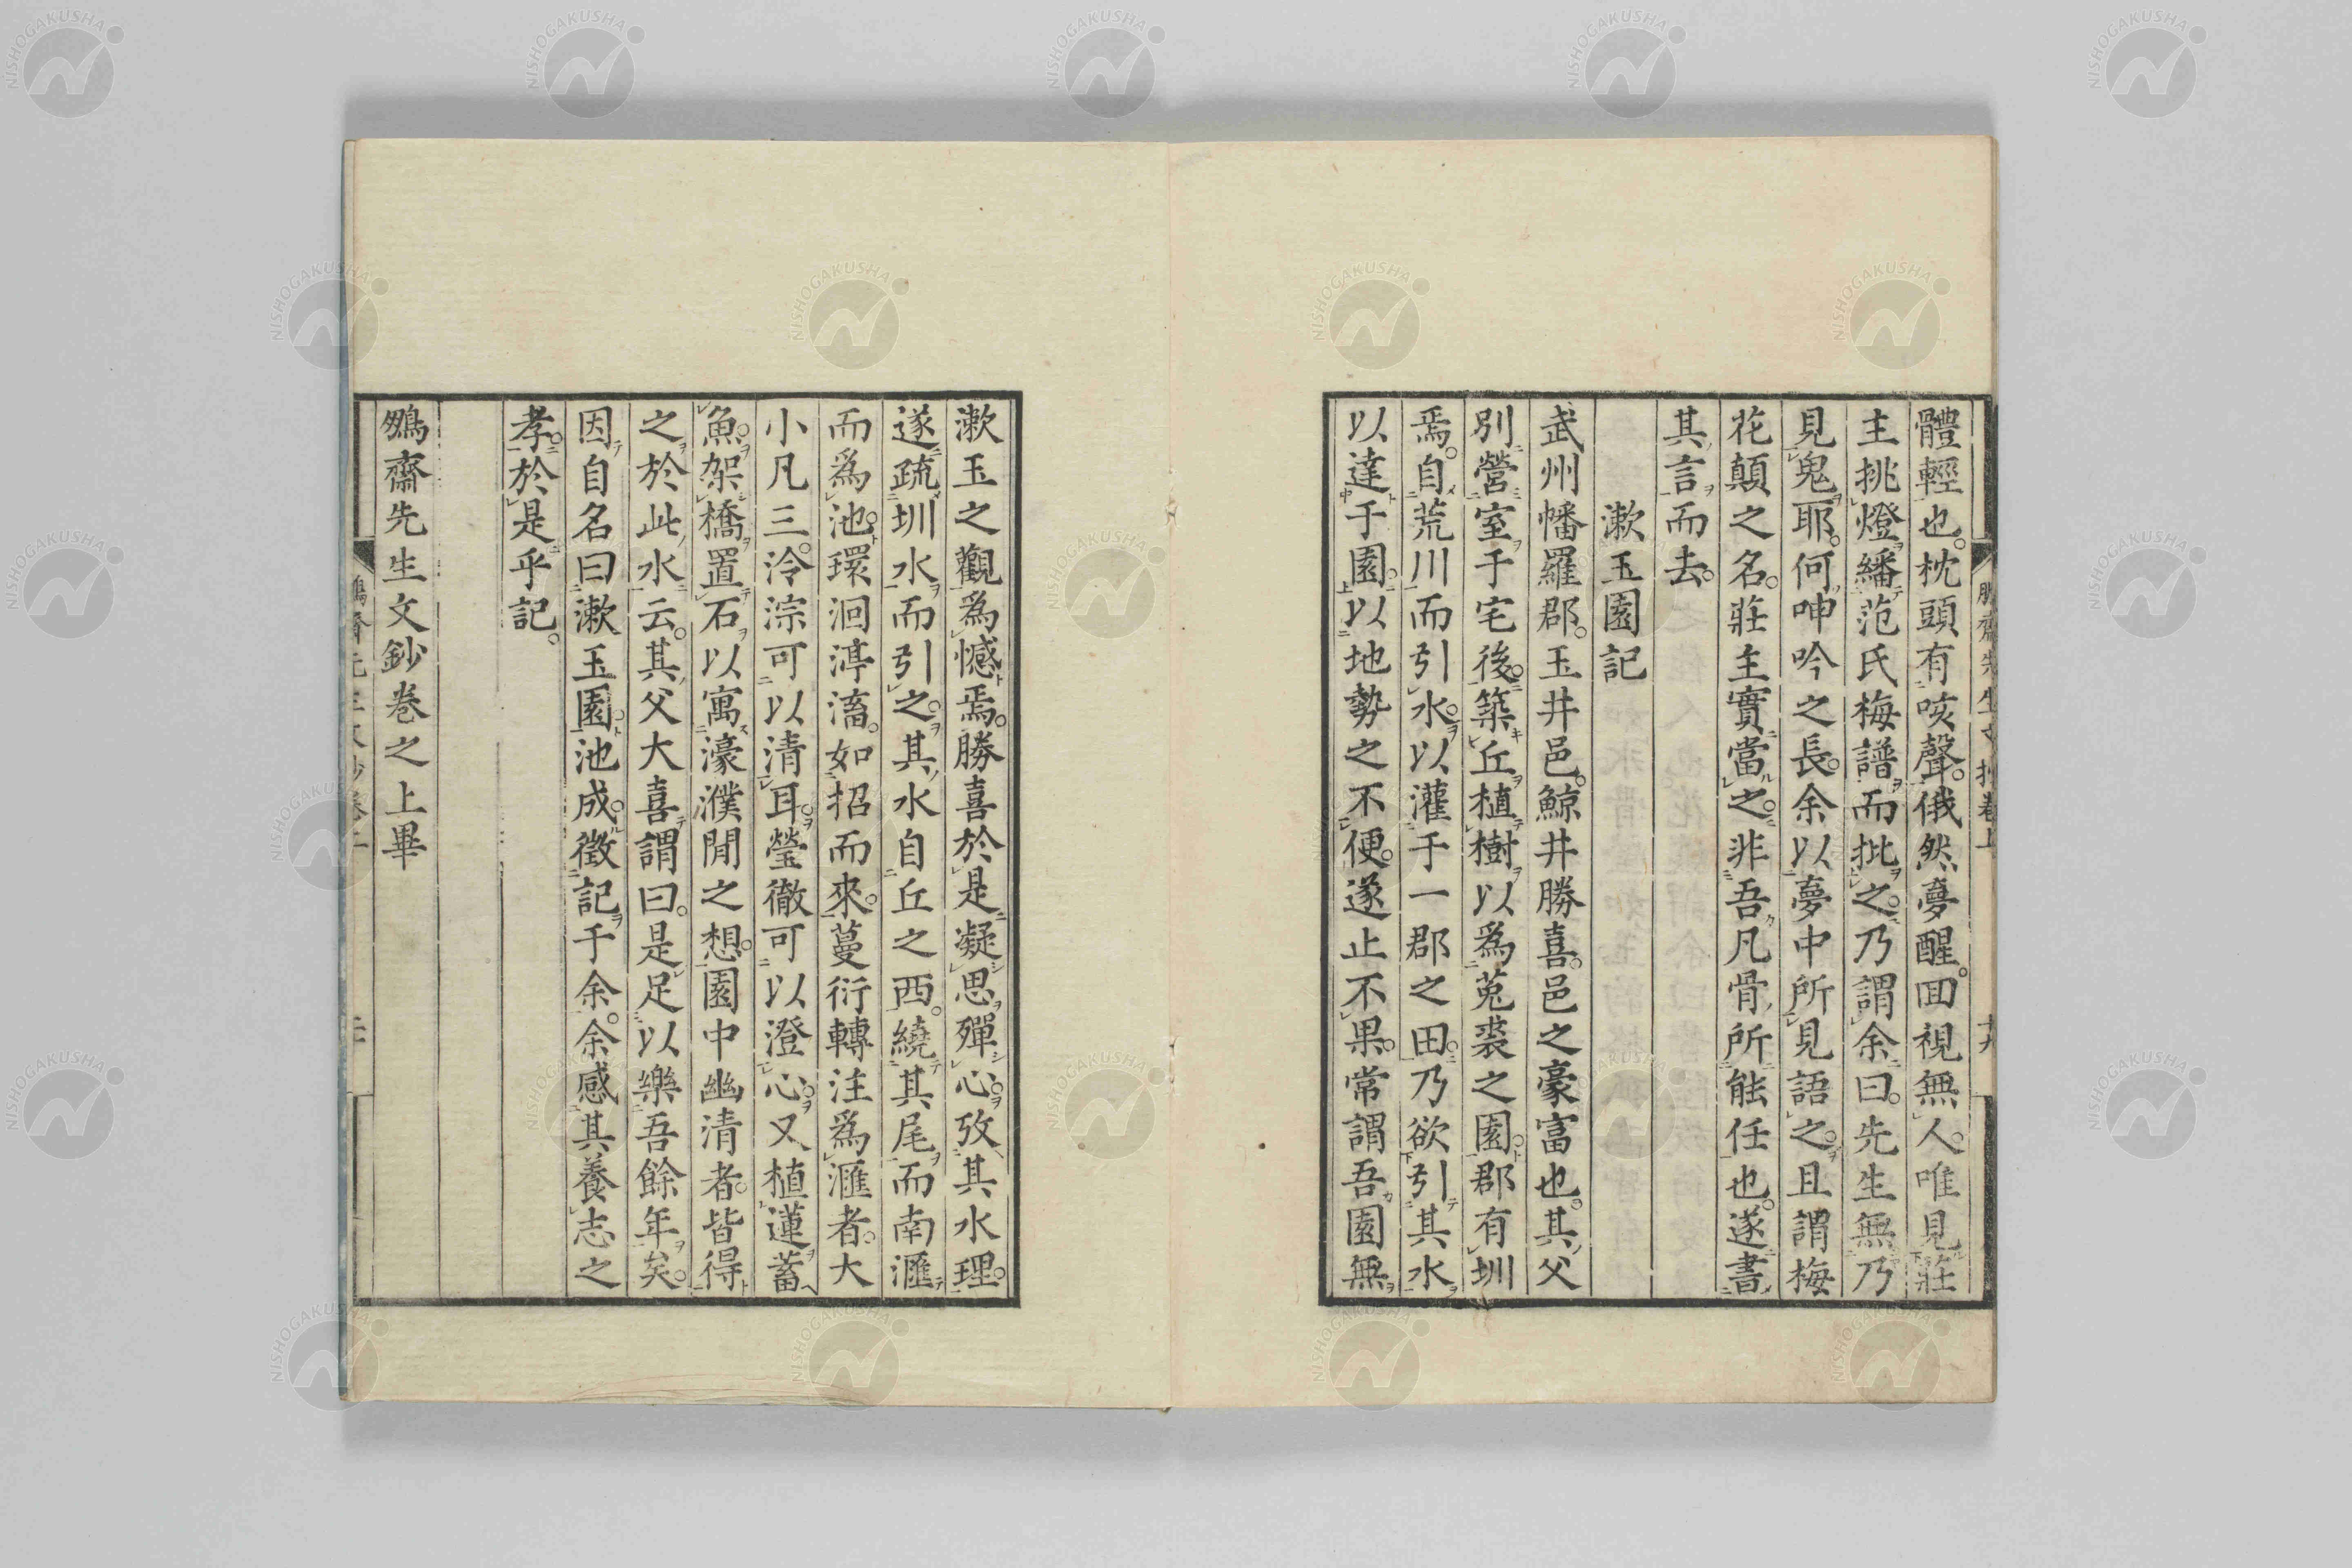 體輕也。枕頭有咳聲。俄然夢醒。回視無人。唯見莊
主挑燈繙范氏梅譜而批之。乃謂余曰。先生無乃
見鬼耶。何呻吟之長。余以夢中所見語之。且謂梅
花顛之名。莊主實當之。非吾凡骨所能任也。遂書
其言而去。
漱玉園記
武州幡羅郡。玉井邑。鯨井勝喜。邑之豪富也。其父
別營室于宅後。築丘植樹以為菟裘之園。郡有圳
焉。自荒川而引水。以灌于一郡之田。乃欲引其水
以達于園。以地勢之不便。遂止不果。常謂吾園無
漱玉之觀為憾焉。勝喜於是凝思殫心。攷其水理。
遂疏圳水而引之。其水自丘之西。繞其尾而南滙
而為池。環洄渟滀。如招而來。蔓衍轉注為滙者。大
小凡三。泠淙可以清耳。瑩徹可以澄心。又植蓮蓄
魚。架橋置石以寓濠濮閒之想。園中幽清者。皆得
之於此水云。其父大喜謂曰。是足以樂吾餘年矣。
因自名曰漱玉園。池成。徵記于余。余感其養志之
孝。於是乎記。
鵬齋先生文鈔卷之上畢